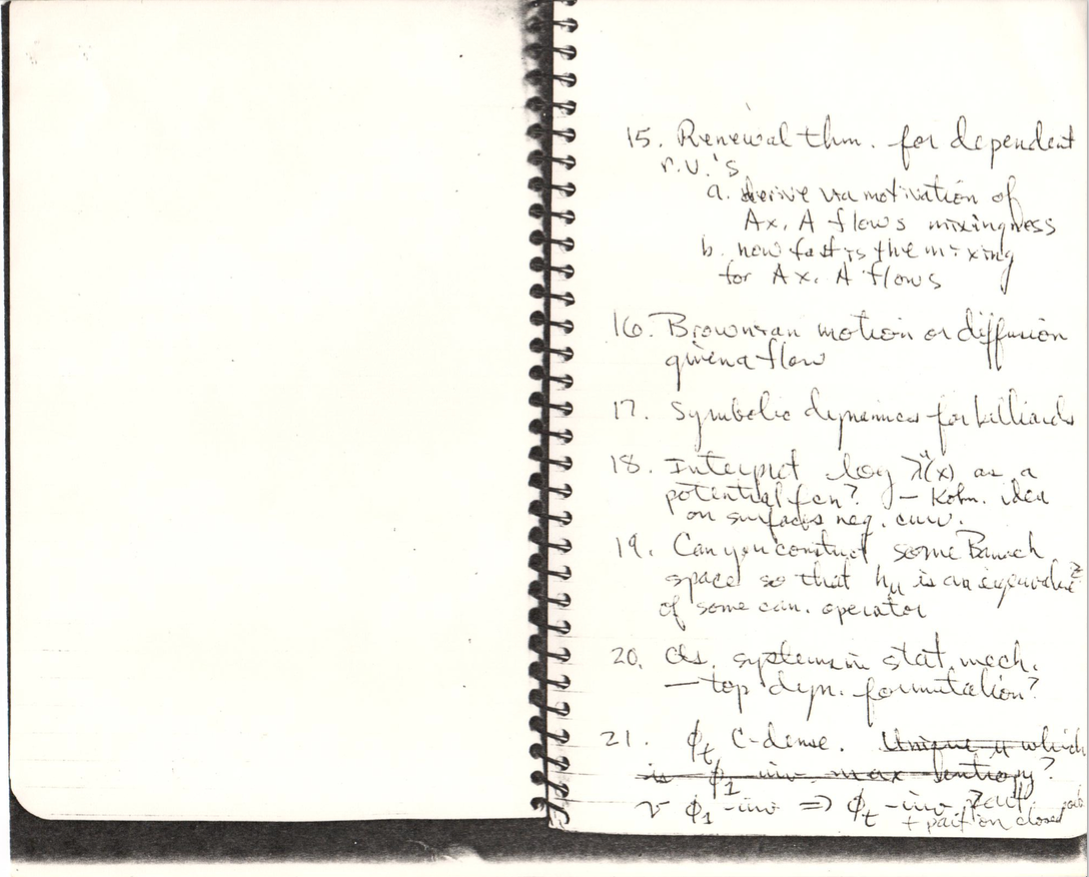 15. Renewal thm. for dependent
r.v.'s
a. derive via motivation of
Ax. A flows mixingness
b. how fast is the mixing
for Ax. A flows
16. Brownian motion or diffusion
given a flow
17. Symbolic dynamics for billiards
18. Interpret log λᵘ(x) as a
potential fcn? — Kohn. idea
on surfaces neg. curv.
19. Can you construct some Banach
space so that hμ is an eigenvalue
of some can. operator
20. Cls. systems in stat. mech.
— top dyn. formulation?
21. ϕt C-dense. Unique μ which
is ϕ1 inv. max entropy?
ν ϕ1-inv ⇒ ϕt-inv
+ part on closed